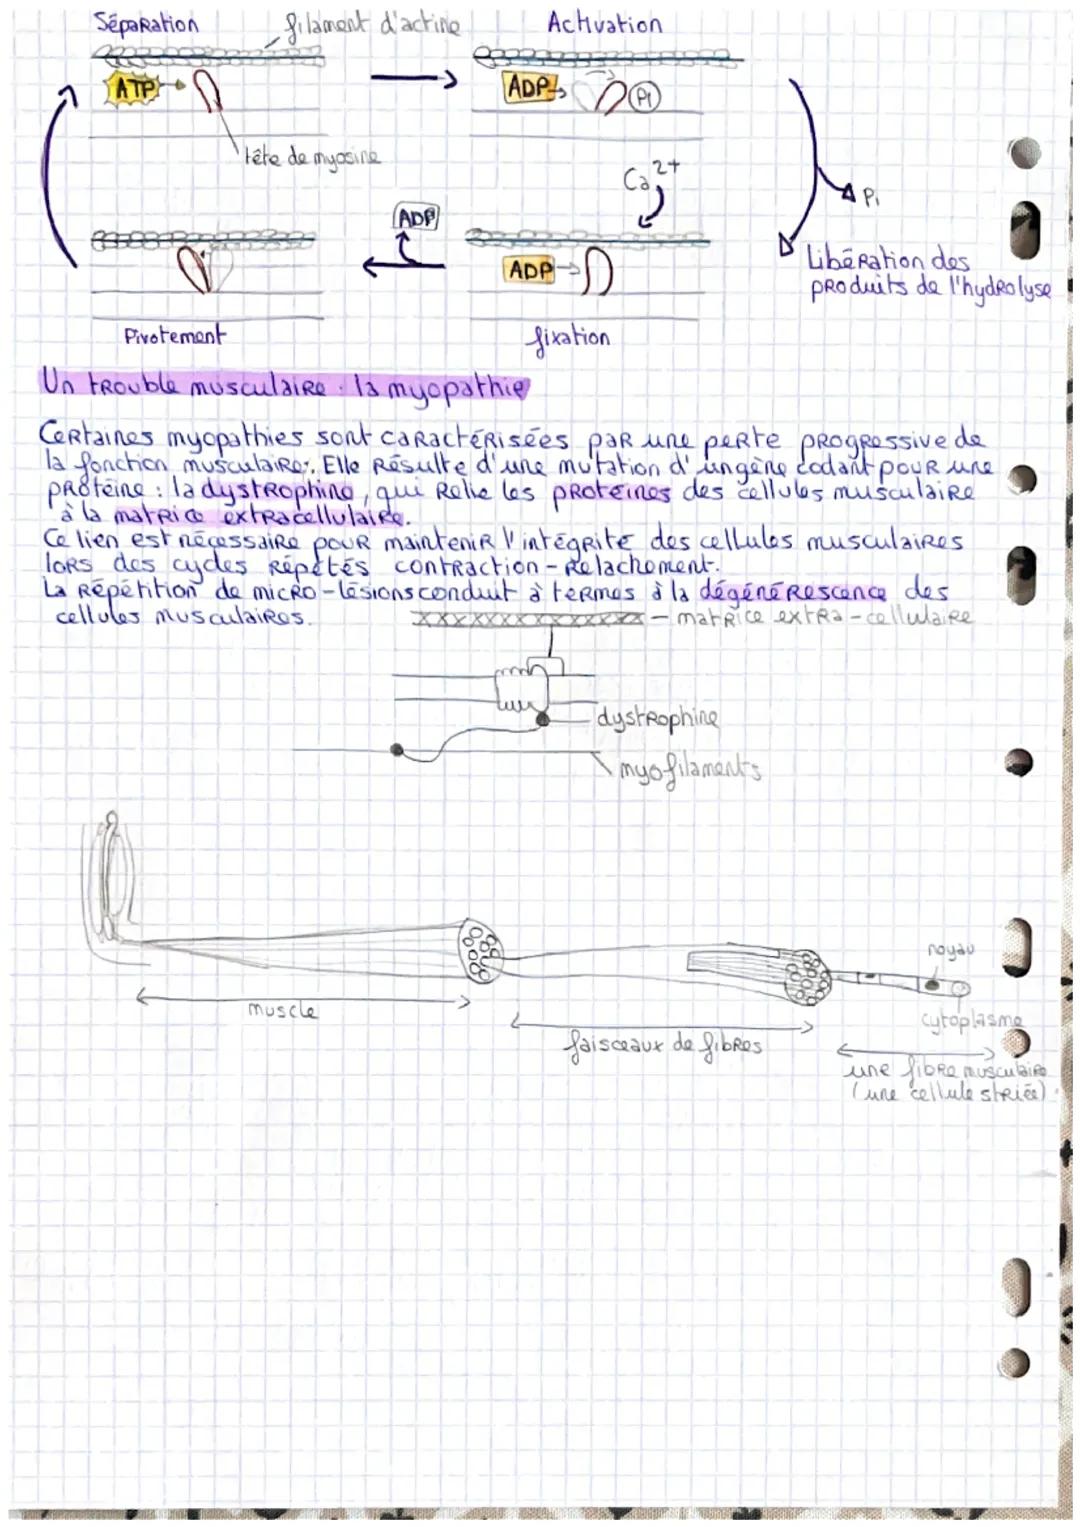 Séparation
filament d'actine
Activation
ATP
ADP
Pi
tête de myosine
Ca2+
Pi
ADP
ADP
Libération des
produits de l'hydrolyse
Pivotement
fixation
Un trouble musculaire : la myopathie
Certaines myopathies sont caractérisées par une perte progressive de
la fonction musculaire. Elle résulte d'une mutation d'un gène codant pour une
protéine : la dystrophine, qui relie les protéines des cellules musculaire
à la matrice extracellulaire.
Ce lien est nécessaire pour maintenir l'intégrité des cellules musculaires
lors des cycles répétés contraction - relachement.
La répétition de micro-lésions conduit à termes à la dégénérescence des
cellules musculaires.
matrice extra-cellulaire
dystrophine
myofilaments
noyau
muscle
cytoplasme
faisceaux de fibres
une fibre musculaire
(une cellule striée)